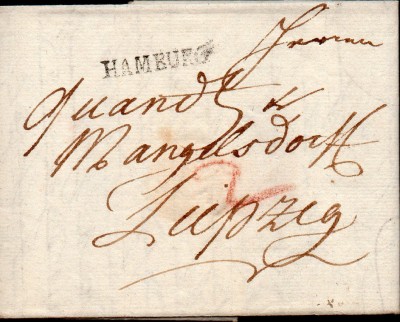 Herren
HAMBURG
Quandt &
Mangelsdorff
2
Leipzig